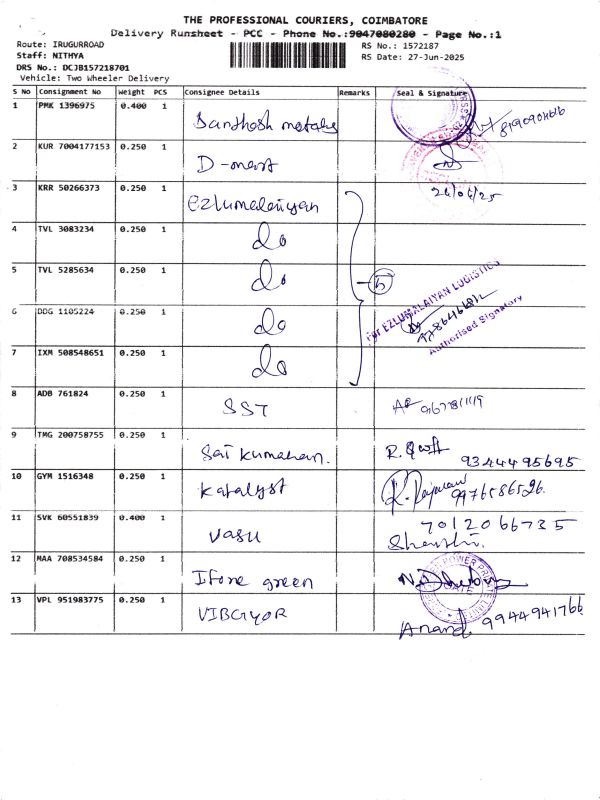 THE PROFESSIONAL COURIERS, COIMBATORE
Delivery Runsheet - PCC - Phone No.:9047080280 - Page No.:1
Route: IRUGURROAD
RS No.: 1572187
Staff: NITHYA
RS Date: 27-Jun-2025
DRS No.: DCJB157218701
Vehicle: Two Wheeler Delivery
S No Consignment No Weight PCS Consignee Details Remarks Seal & Signature
1 PMK 1396975 0.400 1
Santhosh metals
2 KUR 7004177153 0.250 1
D-mart
3 KRR 50266373 0.250 1
Ezlumalaiyan
4 TVL 3083234 0.250 1
do
5 TVL 5285634 0.250 1
do
5
For EZLUMALAIYAN LOGISTICS
Authorised Signatory
6 DDG 1105224 0.250 1
do
7 IXM 508548651 0.250 1
do
8 ADB 761824 0.250 1
SST
9 TMG 200758755 0.250 1
Sai Kumaran.
9344495695
10 GYM 1516348 0.250 1
Katalyst
R. Rajman
9976586526.
11 SVK 60551839 0.400 1
Vasu
7012066735
12 MAA 708534584 0.250 1
green
13 VPL 951983775 0.250 1
VIBGYOR
Anand 9944941766